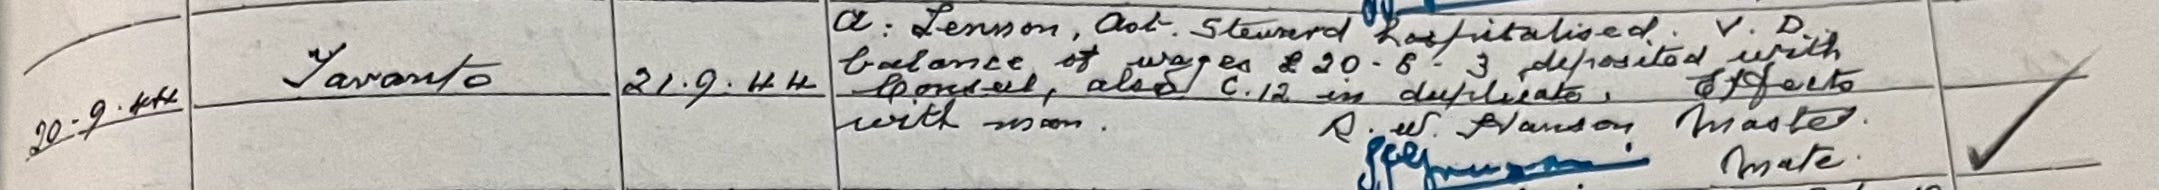 20-9-44 Taranto 21.9.44 A. Lenson, Ast. Steward hospitalised. V.D.
balance of wages £20-8-3 deposited with
Consul, also C.12 in duplicate. Effects
with man. R. W. Hanson Master.
Mate.